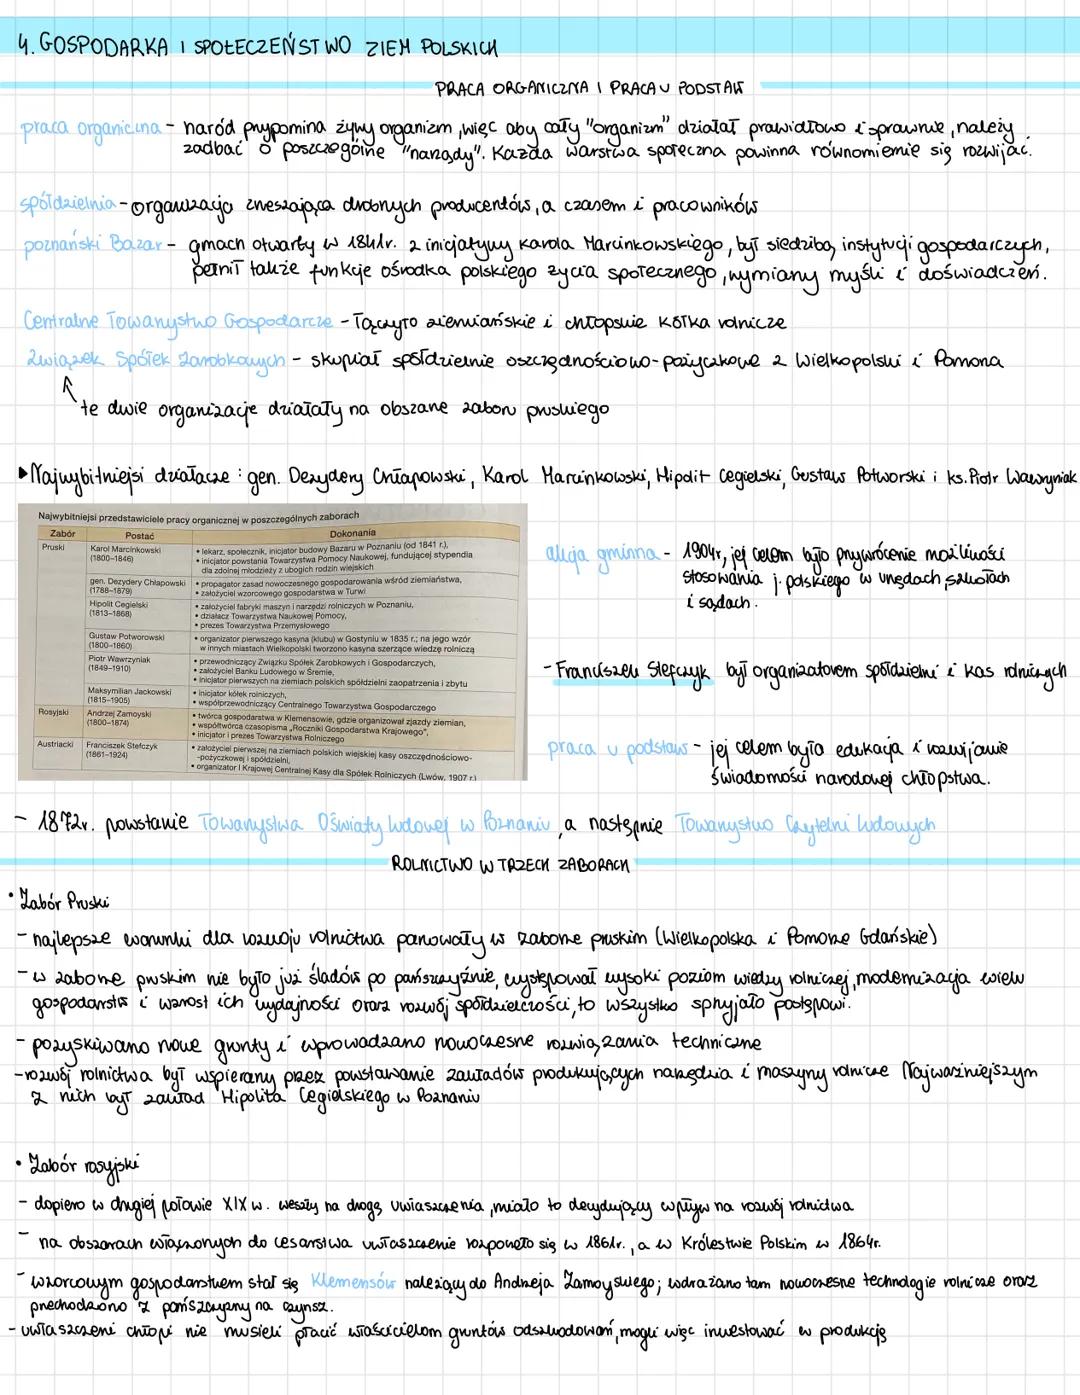 4. GOSPODARKA I SPOŁECZEŃSTWO ZIEM POLSKICH
PRACA ORGANICZNA I PRACA U PODSTAW
praca organiczna - naród przypomina żywy organizm, więc aby cały "organizm" działał prawidłowo i sprawnie, należy
zadbać o poszczególne "narządy". Każda warstwa społeczna powinna równomiernie się rozwijać.
spółdzielnia - organizacja zrzeszająca drobnych producentów, a czasem i pracowników
poznański Bazar - gmach otwarty w 1841r. z inicjatywy Karola Marcinkowskiego, był siedzibą instytucji gospodarczych,
pełnił także funkcję ośrodka polskiego życia społecznego, wymiany myśli i doświadczeń.
Centralne Towarzystwo Gospodarcze - łączyło ziemiańskie i chłopskie kółka rolnicze
Związek Spółek Zarobkowych - skupiał spółdzielnie oszczędnościowo-pożyczkowe z Wielkopolski i Pomorza
te dwie organizacje działały na obszarze zaboru pruskiego
▶ Najwybitniejsi działacze: gen. Dezydery Chłapowski, Karol Marcinkowski, Hipolit Cegielski, Gustaw Potworski i ks. Piotr Wawrzyniak
Najwybitniejsi przedstawiciele pracy organicznej w poszczególnych zaborach
Zabór Postać Dokonania
Pruski Karol Marcinkowski (1800–1846)
• lekarz, społecznik, inicjator budowy Bazaru w Poznaniu (od 1841 r.),
• inicjator powstania Towarzystwa Pomocy Naukowej, fundującej stypendia
dla zdolnej młodzieży z ubogich rodzin wiejskich
gen. Dezydery Chłapowski (1788–1879)
• propagator zasad nowoczesnego gospodarowania wśród ziemiaństwa,
• założyciel wzorcowego gospodarstwa w Turwi
Hipolit Cegielski (1813–1868)
• założyciel fabryki maszyn i narzędzi rolniczych w Poznaniu,
• działacz Towarzystwa Naukowej Pomocy,
• prezes Towarzystwa Przemysłowego
Gustaw Potworowski (1800–1860)
• organizator pierwszego kasyna (klubu) w Gostyniu w 1835 r.; na jego wzór
w innych miastach Wielkopolski tworzono kasyna szerzące wiedzę rolniczą
Piotr Wawrzyniak (1849–1910)
• przewodniczący Związku Spółek Zarobkowych i Gospodarczych,
• założyciel Banku Ludowego w Śremie,
• inicjator pierwszych na ziemiach polskich spółdzielni zaopatrzenia i zbytu
Maksymilian Jackowski (1815–1905)
• inicjator kółek rolniczych,
• współprzewodniczący Centralnego Towarzystwa Gospodarczego
Rosyjski Andrzej Zamoyski (1800–1874)
• twórca gospodarstwa w Klemensowie, gdzie organizował zjazdy ziemian,
• współtwórca czasopisma „Roczniki Gospodarstwa Krajowego",
• inicjator i prezes Towarzystwa Rolniczego
Austriacki Franciszek Stefczyk (1861–1924)
• założyciel pierwszej na ziemiach polskich wiejskiej kasy oszczędnościowo-
-pożyczkowej i spółdzielni,
• organizator I Krajowej Centralnej Kasy dla Spółek Rolniczych (Lwów, 1907 r.)
akcja gminna - 1904r, jej celem było przywrócenie możliwości
stosowania j. polskiego w urzędach, szkołach
i sądach.
- Franciszek Stefczyk był organizatorem spółdzielni i kas rolniczych
praca u podstaw - jej celem była edukacja i rozwijanie
świadomości narodowej chłopstwa.
- 1872r. powstanie Towarzystwa Oświaty Ludowej w Poznaniu, a następnie Towarzystwo Czytelni Ludowych
ROLNICTWO W TRZECH ZABORACH
• Zabór Pruski
- najlepsze warunki dla rozwoju rolnictwa panowały w zaborze pruskim (Wielkopolska i Pomorze Gdańskie)
- w zaborze pruskim nie było już śladów po pańszczyźnie, występował wysoki poziom wiedzy rolniczej, modernizacja wielu
gospodarstw i wzrost ich wydajności oraz rozwój spółdzielczości, to wszystko sprzyjało postępowi.
- pozyskiwano nowe grunty i wprowadzano nowoczesne rozwiązania techniczne
- rozwój rolnictwa był wspierany przez powstawanie zakładów produkujących narzędzia i maszyny rolnicze Najważniejszym
z nich był zakład Hipolita Cegielskiego w Poznaniu
• Zabór rosyjski
- dopiero w drugiej połowie XIX w. weszły na drogę uwłaszczenia, miało to decydujący wpływ na rozwój rolnictwa
- na obszarach włączonych do cesarstwa uwłaszczenie rozpoczęło się w 1861r., a w Królestwie Polskim w 1864r.
- wzorcowym gospodarstwem stał się Klemensów należący do Andrzeja Zamoyskiego; wdrażano tam nowoczesne technologie rolnicze oraz
przechodzono z pańszczyzny na czynsz.
- uwłaszczeni chłopi nie musieli płacić właścicielom gruntów odszkodowań, mogli więc inwestować w produkcję